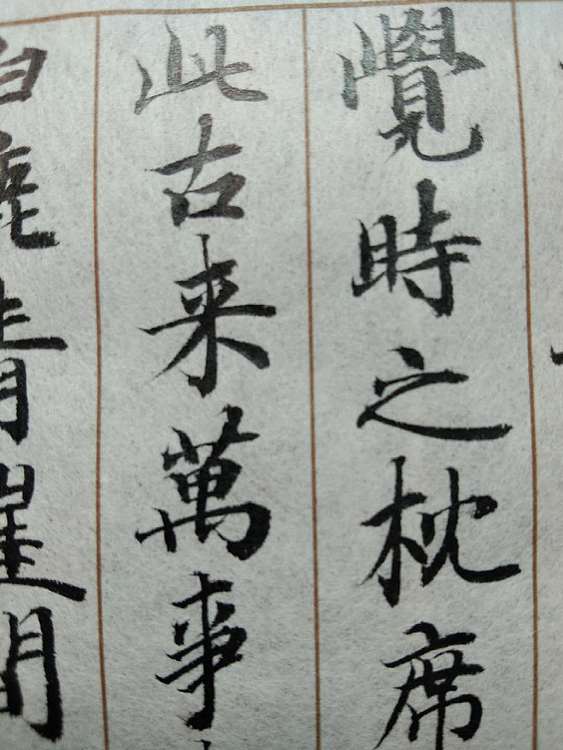 覺時之枕席
此古来萬事
白鹿青崖間